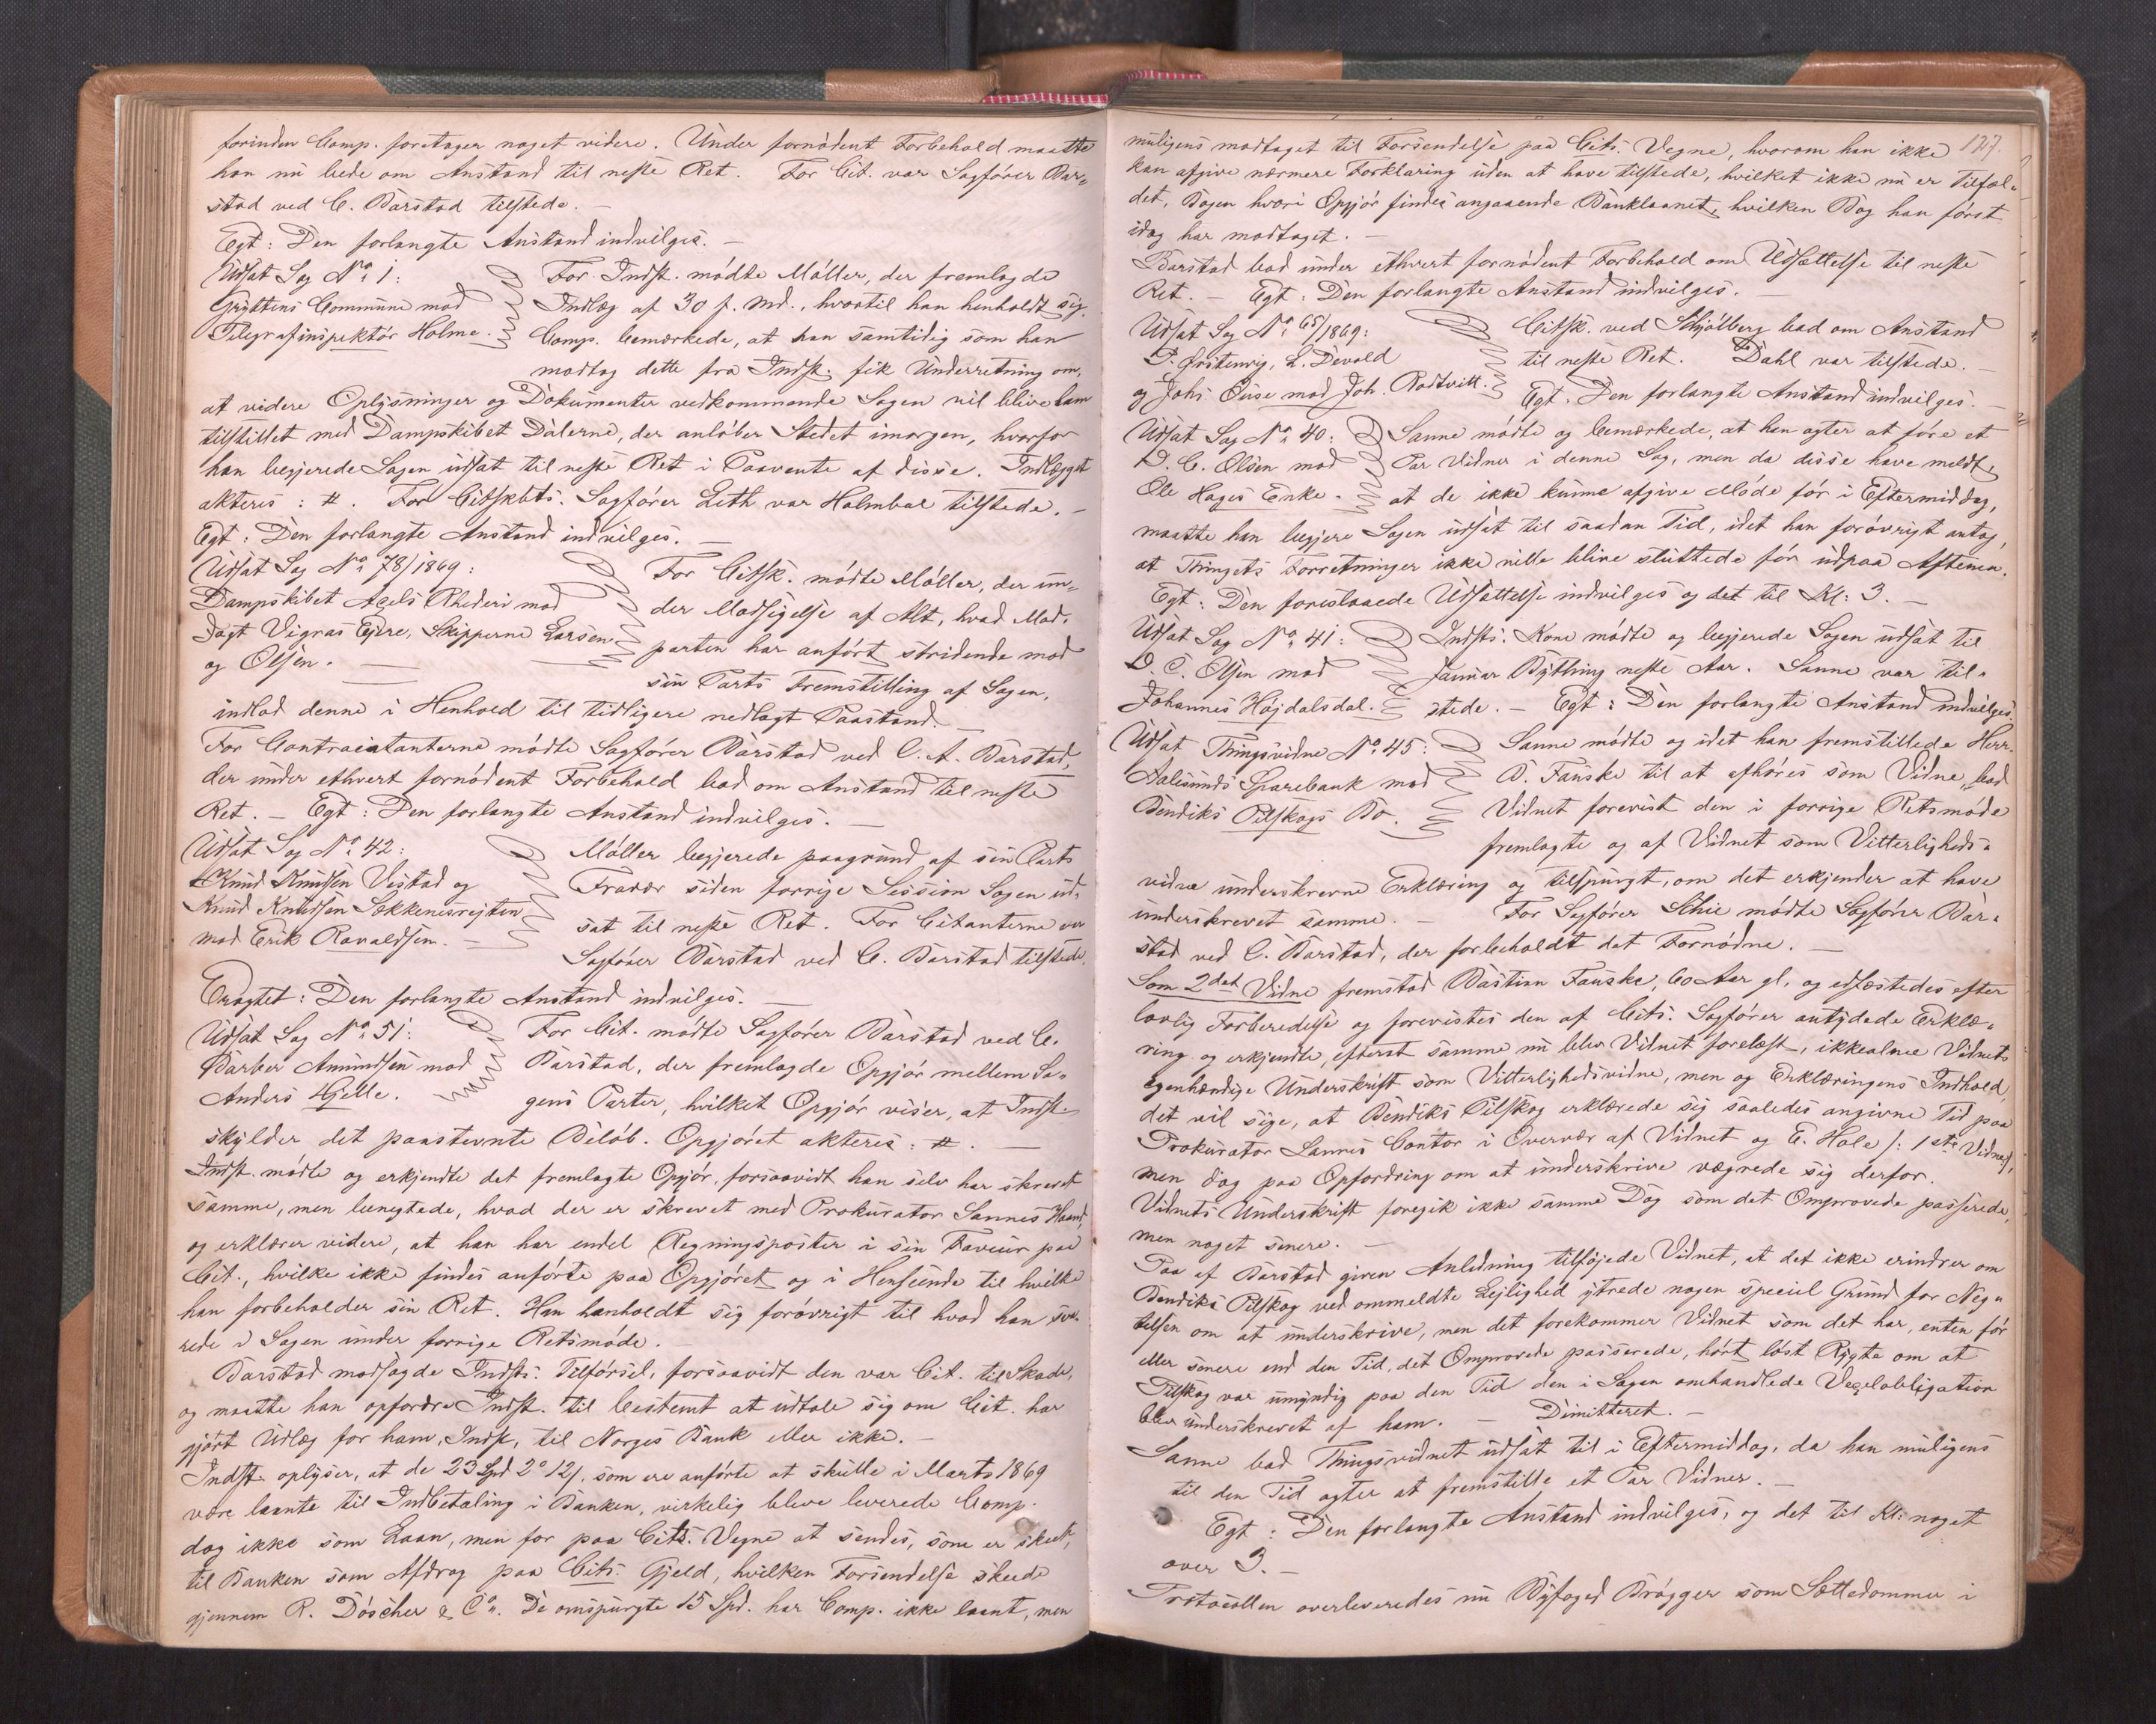 forinden Comp. foretager noget videre. Under fornödent Forbehold maatte
han nu bede om Anstand til neste Ret. For Cit. var Sagförer Bar-
stad ved C. Barstad tilstede. —
Egt: Den forlangte Anstand indvilges. —
Udsat Sag No. 1:
Gryttens Commune mod
Telegrafinspektör Holme.
For Indst. mödte Möller, der fremlagde
Indlæg af 30 f. Md., hvortil han henholdt sig.
Comp. bemærkede, at han samtidig som han
modtog dette fra Indst. fik Underretning om,
at videre Oplysninger og Dokumenter vedkommende Sagen vil blive ham
tilstillet med Dampskibet Dalerne, der anlöber Stedet imorgen, hvorfor
han begjerede Sagen udsat til neste Ret i Paavente af disse. Indlægget
akteres: #. For Citskbts. Sagförer Leth var Holmboe tilstede. —
Egt: Den forlangte Anstand indvilges. —
Udsat Sag No. 78/1869:
Dampskibet Axels Rhederi mod
Jagt Vigras Ejere, Skipperne Larsen
og Olsen. —
For Citsk. mödte Möller, der un-
der Modsigelse af Alt, hvad Mod-
parten har anfört stridende mod
sin Parts Fremstilling af Sagen,
indlod denne i Henhold til tidligere nedlagt Paastand. —
For Contracitanterne mödte Sagförer Barstad ved C. A. Barstad,
der under ethvert fornödent Forbehold bad om Anstand til neste
Ret. — Egt: Den forlangte Anstand indvilges. —
Udsat Sag No. 42:
Knud Knudsen Vestad og
Knud Knudsen Sekkenesrejten
mod Erik Ravaldsen. —
Möller begjerede paagrund af sin Parts
Fravær siden forrige Session Sagen ud-
sat til neste Ret. For Citanterne var
Sagförer Barstad ved C. Barstad tilstede.
Eragtet: Den forlangte Anstand indvilges. —
Udsat Sag No. 51:
Barber Amundsen mod
Anders Hjelle.
For Cit. mödte Sagförer Barstad ved C.
Barstad, der fremlagde Opgjör mellem Sa-
gens Parter, hvilket Opgjör viser, at Indst.
skylder det paastevnte Belöb. Opgjöret akteres: #. —
Indst. mödte og erkjendte det fremlagte Opgjör, forsaavidt han selv har skrevet
samme, men benegtede, hvad der er skrevet med Prokurator Sannes Haand,
og erklærer videre, at han har endel Regningsposter i sin Faveur paa
Cit., hvilke ikke findes anförte paa Opgjöret og i Henseende til hvilke
han forbeholder sin Ret. Han henholdt sig forövrigt til hvad han sva-
rede i Sagen under forrige Retsmöde. —
Barstad modsagde Indsts. Tilförsel, forsaavidt den var Cit. til Skade,
og maatte han opfordre Indst. til bestemt at udtale sig om Cit. har
gjort Udlæg for ham, Indst., til Norges Bank eller ikke. —
Indst. oplyser, at de 23 Spd 2o 12/. som ere anförte at skulle i Marts 1869
være laante til Indbetaling i Banken, virkelig bleve leverede Comp.
dog ikke som Laan, men for paa Cits. Vegne at sendes, som er skeet,
til Banken som Afdrag paa Cits. Gjeld, hvilken Forsendelse skeede
gjennem R. Döscher & Co. De omspurgte 15 Spd. har Comp. ikke laant, men
127.
muligens modtaget til Forsendelse paa Cits. Vegne, hvorom han ikke
kan afgive nærmere Forklaring uden at have tilstede, hvilket ikke nu er Tilfæl-
det, Bogen hvori Opgjör findes angaaende Banklaanet, hvilken Bog han först
idag har modtaget. —
Barstad bad under ethvert fornödent Forbehold om Udsættelse til neste
Ret. — Egt: Den forlangte Anstand indvilges. —
Udsat Sag No. 65/1869:
P. Grötenrig, L. Devold
og Johs Ouse mod Joh. Rodtvitt.
Citsk. ved Schjölberg bad om Anstand
til neste Ret. Dahl var tilstede. —
Egt: Den forlangte Anstand indvilges. —
Udsat Sag No. 40:
D. C. Olsen mod
Ole Hages Enke.
Sanne mödte og bemærkede, at han agter at före et
Par Vidner i denne Sag, men da disse have meldt,
at de ikke kunne afgive Möde för i Eftermiddag,
maatte han begjere Sagen udsat til saadan Tid, idet han forövrigt antog,
at Thingets Forretninger ikke ville blive sluttede för udpaa Aftenen.
Egt: Den foreslaaede Udsættelse indvilges og det til Kl: 3. —
Udsat Sag No. 41:
D. C. Olsen mod
Johannes Höjdalsdal.
Indsts. Kone mödte og begjerede Sagen udsat til
Januar Bything neste Aar. Sanne var til-
stede. — Egt: Den forlangte Anstand indvilges.
Udsat Thingsvidne No. 45:
Aalesunds Sparebank mod
Bendiks Pilskogs Bo.
Sanne mödte og idet han fremstillede Herr
B. Fauske til at afhöres som Vidne, bad
Vidnet forevist den i forrige Retsmöde
fremlagte og af Vidnet som Vitterligheds-
vidne underskrevne Erklæring og tilspurgt, om det erkjender at have
underskrevet samme. — For Sagförer Schie mödte Sagförer Bar-
stad ved C. Barstad, der forbeholdt det Fornödne. —
Som 2det Vidne fremstod Bastian Fauske, 60 Aar gl. og edfæstedes efter
lovlig Forberedelse og forevistes den af Cits. Sagförer antydede Erklæ-
ring og erkjendte, efterat samme nu blev Vidnet forelæst, ikkealene Vidnets
egenhændige Underskrift som Vitterlighedsvidne, men og Erklæringens Indhold,
det vil sige, at Bendiks Pilskog erklærede sig saaledes angivne Tid paa
Prokurator Sannes Contor i Overvær af Vidnet og E. Hole /: 1ste Vidne/,
men dog paa Opfordring om at underskrive vægrede sig derfor.
Vidnets Underskrift foregik ikke samme Dag som det Omprovede passerede,
men noget senere. —
Paa af Barstad given Anledning tilföjede Vidnet, at det ikke erindrer om
Bendiks Pilskog ved ommeldte Lejlighed ytrede nogen speciel Grund for Neg-
telsen om at underskrive, men det forekommer Vidnet som det har, enten för
eller senere end den Tid, det Omprovede passerede, hört löst Rygte om at
Pilskog var umyndig paa den Tid den i Sagen omhandlede Vexelobligation
blev underskrevet af ham. — Dimitteret. —
Sanne bad Thingsvidnet udsat til i Eftermiddag, da han muligens
til den Tid agter at fremstille et Par Vidner. —
Egt: Den forlangte Anstand indvilges, og det til Kl: noget
over 3. —
Protocollen overleveredes nu Byfoged Brögger som Settedommer i